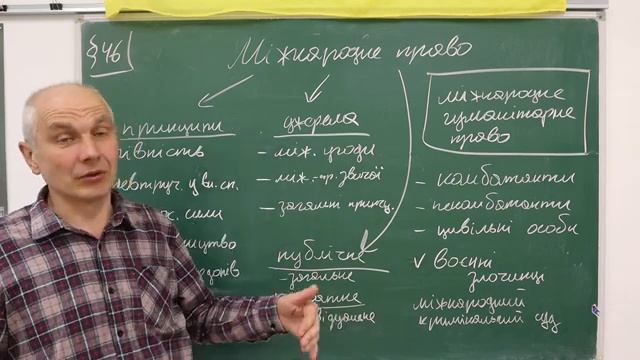 §46
Міжнародне право
принципи
рівність
невтруч. у вн. сп.
сили
джерела
- між. угоди
- між.-пр. звичаї
- загальні принц.
публічне
загальне
міжнародне
гуманітарне
право
- комбатанти
- некомбатанти
- цивільні особи
✓ воєнні
злочинці
міжнародний
кримінальний суд